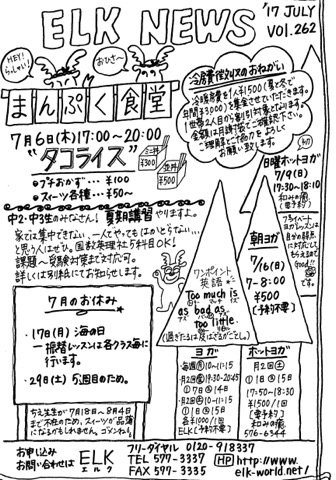 ELK NEWS
'17 JULY
VOL.262
HEY!
らっしゃい!
おひさ〜
まんぷく食堂
7月6日(木)17:00〜20:00
"タコライス"
ミニ丼
¥300
並丼
¥500
●プチおかず… ¥100
●スイーツ各種… ¥50〜
冷房費徴収のおねがい
冷暖房費を1人¥1500(夏と冬で
年間¥3000)を集金させていただきます。
1世帯2人目から割り引き対象となります。
金額は月謝袋でご確認下さい。
ご理解とご協力をよろしく
お願い致します。
中2・中3生のみなさん! 夏期講習やりますよ。
家では集中できない、一人でやってもはかどらない…
と思う人はぜひ。国数英理社5科目OK!
課題〜受験対策まで対応可。
詳しくは別紙にてお知らせします。
日曜ホットヨガ
7/9(日)
17:30〜18:10
和みの薗
(要予約)
朝ヨガ
7/16(日)
7〜8:00
¥500
(予約不要)
Good!!
ワンポイント
英語
Too much is
as bad as
too little.
(過ぎたるは及ばざるがごとし。)
7月のお休み
・17日(月)海の日
→振替レッスンは各クラス毎に
行います。
・29日(土)5週目のため。
ちえ先生が7月18日〜8月4日
まで不在のため、スイーツが品薄
になるかもしれません。ゴメンね!
ヨガ
毎週㊊10〜11:15
月2回㊋19:30〜20:45
①7日②14日
月2回㊏10〜11:15
①1日②15日
各¥1000/1回
ELKにて(予約不要)
ホットヨガ
月2回㊏
①1日②15日
17:50〜18:30
¥1500/1回
(要予約)
和みの薗
576-6344
お申し込み
お問い合わせは
ELK
エルク
フリーダイヤル 0120-918337
TEL 577-3337
FAX 577-3335
HP http://www.
elk-world.net/